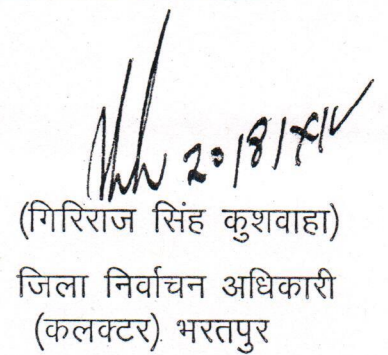 20/8/
(गिरिराज सिंह कुशवाहा)
जिला निर्वाचन अधिकारी
(कलक्टर) भरतपुर